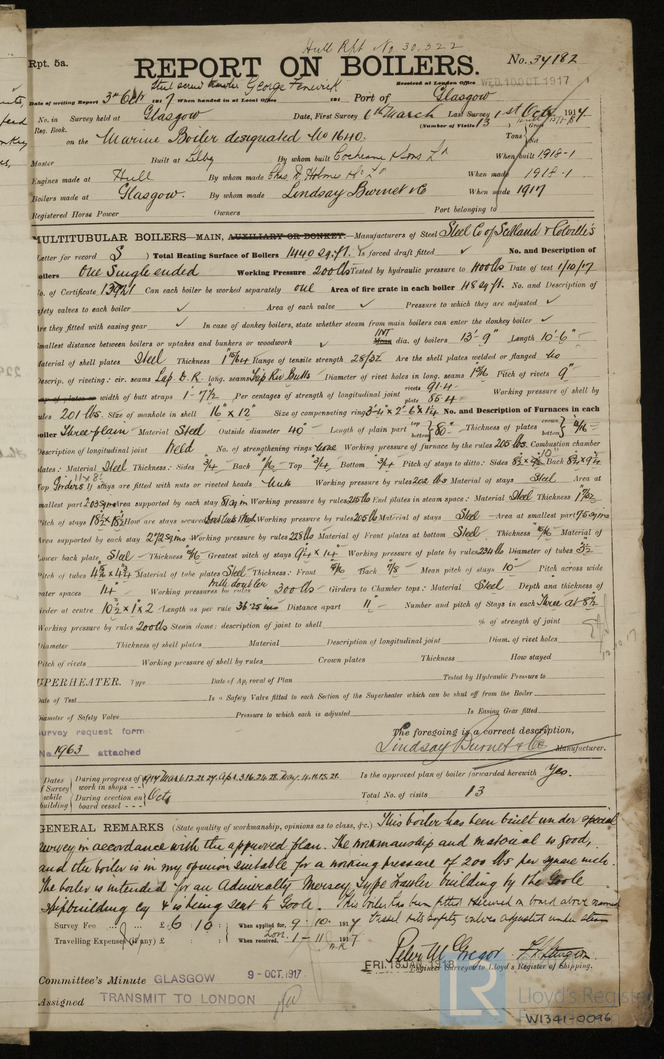 Hull Rpt No. 30,322
Rpt. 5a.
REPORT ON BOILERS.
No. 34182
Steel screw trawler George Fenwick
Received at London Office WED. 10 OCT 1917
Date of writing Report 3rd Oct 1917 When handed in at Local Office 191 Port of Glasgow
No. in Survey held at Glasgow Date, First Survey 6th March Last Survey 1st Oct 1917
Reg. Book. (Number of Visits 13
on the Marine Boiler designated No 1640. Gross Tons Net
Master Built at Selby By whom built Cochrane & Sons Ld When built 1918-1
Engines made at Hull By whom made Chas D. Holmes & Co Ld When made 1918-1
Boilers made at Glasgow. By whom made Lindsay Burnet & Co When made 1917
Registered Horse Power Owners Port belonging to
MULTITUBULAR BOILERS—MAIN, AUXILIARY OR DONKEY.—Manufacturers of Steel Steel Co of Scotland & Colville's
Letter for record S) Total Heating Surface of Boilers 1440 sq. ft. Is forced draft fitted ✓ No. and Description of
Boilers One Single ended Working Pressure 200 lbs Tested by hydraulic pressure to 400 lbs Date of test 1/10/17
No. of Certificate 13921 Can each boiler be worked separately one Area of fire grate in each boiler 48 sq. ft. No. and Description of
safety valves to each boiler ✓ Area of each valve ✓ Pressure to which they are adjusted ✓
Are they fitted with easing gear ✓ In case of donkey boilers, state whether steam from main boilers can enter the donkey boiler ✓
Smallest distance between boilers or uptakes and bunkers or woodwork ✓ INT Mean dia. of boilers 13'-9" Length 10'-6"
Material of shell plates Steel Thickness 1 15/64 Range of tensile strength 28/32 Are the shell plates welded or flanged no
Descrip. of riveting: cir. seams Lap D. R. long. seams Trip Riv Butts Diameter of rivet holes in long. seams Pitch of rivets 9"
Lap of plates or width of butt straps 1'-7½ Per centages of strength of longitudinal joint rivets 91.4 plate 85.4 Working pressure of shell by
rules 201 lbs. Size of manhole in shell 16" x 12" Size of compensating ring No. and Description of Furnaces in each
boiler Three plain Material Steel Outside diameter 40" Length of plain part top bottom 80" Thickness of plates crown bottom
Description of longitudinal joint Weld No. of strengthening rings none Working pressure of furnace by the rules 205 lbs. Combustion chamber
plates: Material Steel Thickness: Sides ¾ Back Top ¾ Bottom ¾ Pitch of stays to ditto: Sides Back
Top Girders If stays are fitted with nuts or riveted heads Nuts Working pressure by rules 202 lbs Material of stays Steel Area at
smallest part Area supported by each stay Working pressure by rules 215 lbs End plates in steam space: Material Steel Thickness
Pitch of stays How are stays secured Working pressure by rules 205 lbs Material of stays Steel Area at smallest part
Area supported by each stay Working pressure by rules 228 lbs Material of Front plates at bottom Steel Thickness Material of
Lower back plate Steel Thickness Greatest pitch of stays Working pressure of plate by rules Diameter of tubes 3½
Pitch of tubes Material of tube plates Steel Thickness: Front Back 7/8 Mean pitch of stays 10" Pitch across wide
water spaces 14" Working pressures by rules With doubler 300 lbs Girders to Chamber tops: Material Steel Depth and thickness of
girder at centre 10½ x 1 x 2 Length as per rule Distance apart 11" Number and pitch of Stays in each Three at 8½
Working pressure by rules 200 lbs Steam dome: description of joint to shell % of strength of joint
Diameter Thickness of shell plates Material Description of longitudinal joint Diam. of rivet holes
Pitch of rivets Working pressure of shell by rules Crown plates Thickness How stayed
SUPERHEATER. Type Date of Approval of Plan Tested by Hydraulic Pressure to
Date of Test Is a Safety Valve fitted to each Section of the Superheater which can be shut off from the Boiler
Diameter of Safety Valve Pressure to which each is adjusted Is Easing Gear fitted
Survey request form
No. 1963 attached
The foregoing is a correct description,
Lindsay Burnet & Co. Manufacturer.
Dates of Survey while building
During progress of work in shops - - 1917 Mar 6. 12. 21. 27. Apr 3. 16. 24. 28. May 4. 11. 15. 21. Is the approved plan of boiler forwarded herewith Yes.
During erection on board vessel - - - Oct 1 Total No. of visits 13
GENERAL REMARKS (State quality of workmanship, opinions as to class, &c.) This boiler has been built under special
survey in accordance with the approved plan. The workmanship and material is good,
and the boiler is in my opinion suitable for a working pressure of 200 lbs per square inch.
The boiler is intended for an Admiralty Mersey Type Trawler building by the Goole
Shipbuilding Coy & is being sent to Goole. This boiler has been fitted & secured on board above named
Vessel & its safety valves adjusted under steam
Survey Fee ... £ 6 10 : When applied for, 9. 10. 1917
Travelling Expenses (if any) £ : : When received, 1-11 1917
Peter McGregor
Engineer Surveyor to Lloyd's Register of Shipping.
FRI. 18 JAN. 1918
Committee's Minute GLASGOW 9-OCT.1917
Assigned TRANSMIT TO LONDON
LR
Lloyd's Register
W1341-0096